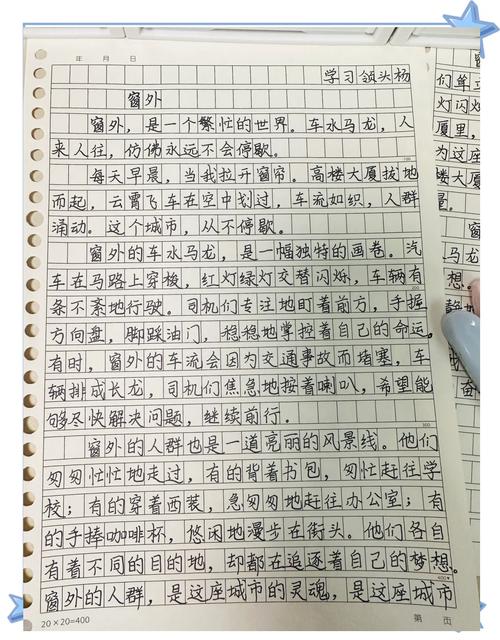 年 月 日
学习领头杨
窗外
窗外，是一个繁忙的世界。车水马龙，人
来人往，仿佛永远不会停歇。
100
每天早晨，当我拉开窗帘。高楼大厦拔地
而起，云霄飞车在空中划过，车流如织，人群
涌动。这个城市，从不停歇。
窗外的车水马龙，是一幅独特的画卷。汽
车在马路上穿梭，红灯绿灯交替闪烁，车辆有
200
条不紊地行驶。司机们专注地盯着前方，手握
方向盘，脚踩油门，稳稳地掌控着自己的命运。
有时，窗外的车流会因为交通事故而堵塞，车
辆排成长龙，司机们焦急地按着喇叭，希望能
够尽快解决问题，继续前行。
300
窗外的人群也是一道亮丽的风景线。他们
匆匆忙忙地走过，有的背着书包，匆忙赶往学
校；有的穿着西装，急匆匆地赶往办公室；有
的手捧咖啡杯，悠闲地漫步在街头。他们各自
有着不同的目的地，却都在追逐着自己的梦想。
400
窗外的人群，是这座城市的灵魂，是这座城市
20×20=400
第 页
们耸立
灯闪烁
厦里，
为这座
楼大厦
量。
窗
马龙
想。
奋